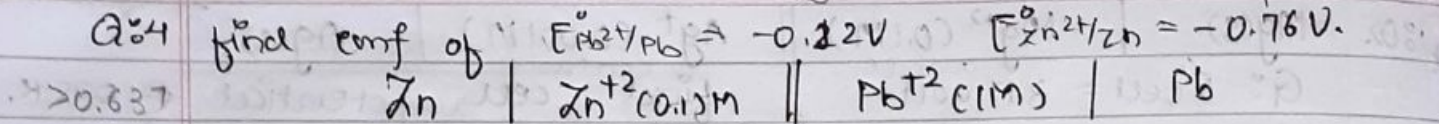 Q:4 find emf of E°Pb²⁺/Pb = -0.12V E°Zn²⁺/Zn = -0.76V.
Zn | Zn⁺² (0.1)M || Pb⁺² (1M) | Pb